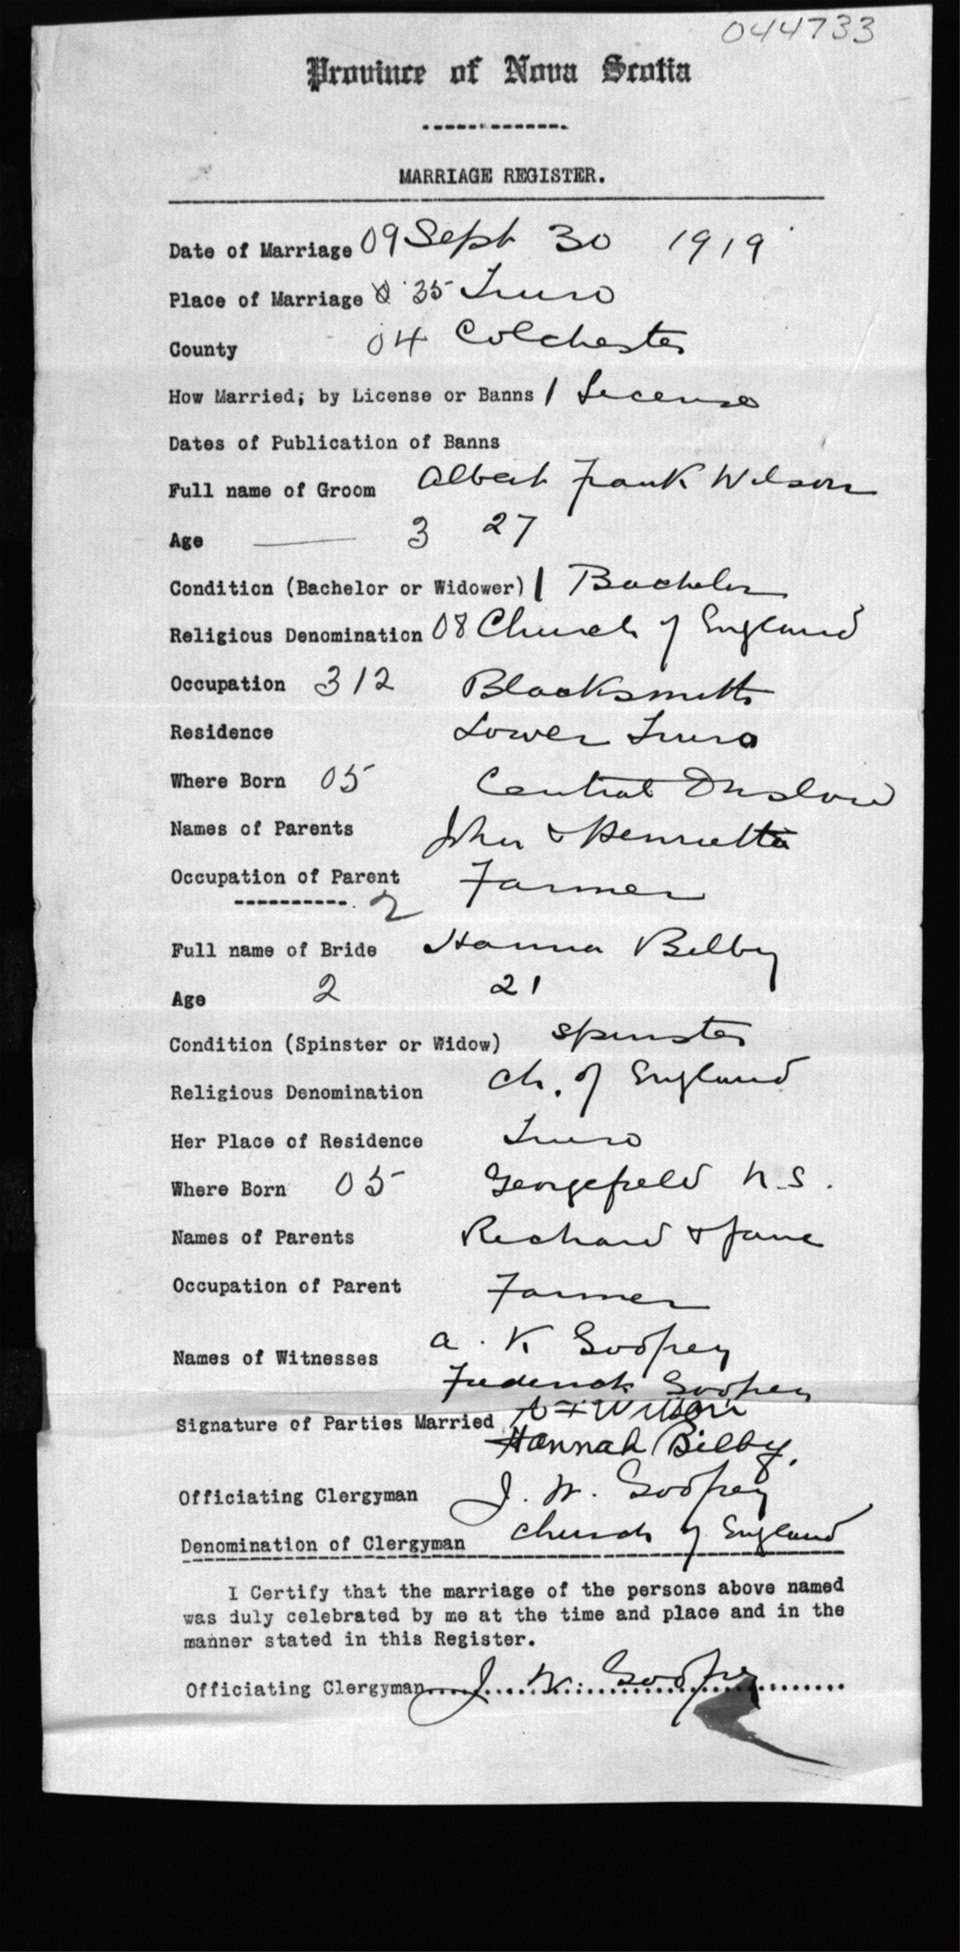 044733
Province of Nova Scotia
MARRIAGE REGISTER.
Date of Marriage 09 Sept 30 1919
Place of Marriage 35 Truro
County 04 Colchester
How Married; by License or Banns 1 License
Dates of Publication of Banns
Full name of Groom Albert Frank Wilson
Age 3 27
Condition (Bachelor or Widower) 1 Bachelor
Religious Denomination 08 Church of England
Occupation 312 Blacksmith
Residence Lower Truro
Where Born 05 Central Onslow
Names of Parents John & Henrietta
Occupation of Parent Farmer
2
Full name of Bride Hanna Bilby
Age 2 21
Condition (Spinster or Widow) spinster
Religious Denomination Ch. of England
Her Place of Residence Truro
Where Born 05 Georgefield N.S.
Names of Parents Richard & Jane
Occupation of Parent Farmer
Names of Witnesses A. K Godfrey
Frederick Godfrey
Signature of Parties Married A F Wilson
Hannah Bilby.
Officiating Clergyman J. W. Godfrey
Denomination of Clergyman Church of England
I Certify that the marriage of the persons above named
was duly celebrated by me at the time and place and in the
manner stated in this Register.
Officiating Clergyman J. W. Godfrey